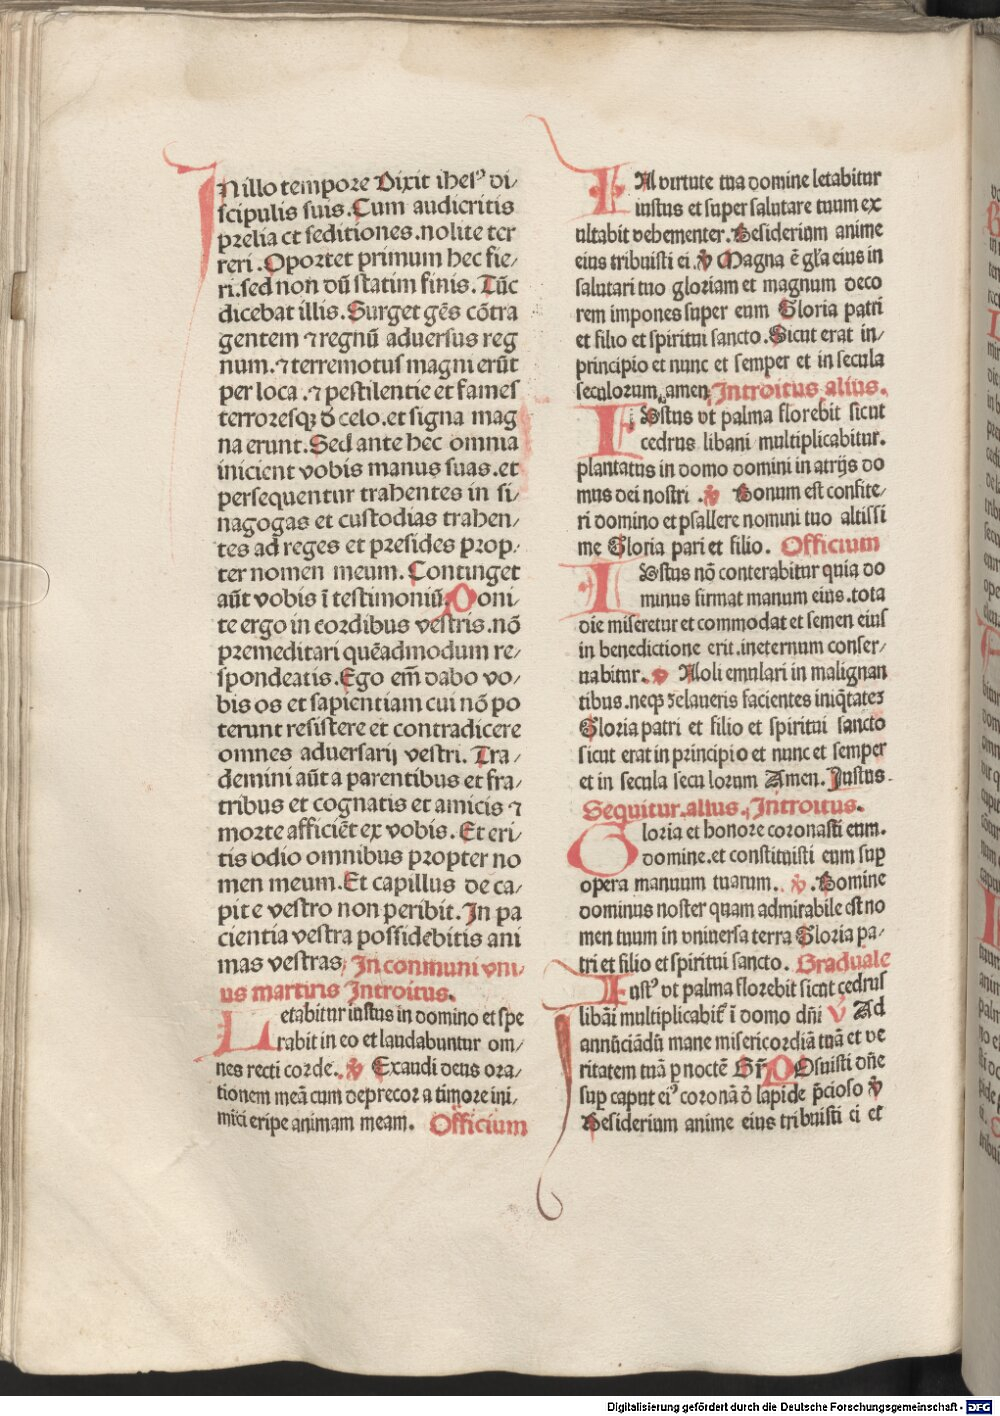 IN illo tempore Dixit ihesꝰ di⸗
scipulis suis. Cum audieritis
prelia et seditiones. nolite ter
reri. Oportet primum hec fie⸗
ri. sed non dū statim finis. Tūc
dicebat illis. Surget gēs cōtra
gentem ⁊ regnū adversus reg
num. ⁊ terremotus magni erūt
per loca. ⁊ pestilentie et fames
terroresqꝫ d̄ celo. et signa mag
na erunt. Sed ante hec omnia
inicient vobis manus suas. et
persequentur trahentes in si⸗
nagogas et custodias trahen⸗
tes ad reges et presides prop⸗
ter nomen meum. Continget
aūt vobis ī testimoniū. Poni⸗
te ergo in cordibus vestris. nō
premeditari quēadmodum re⸗
spondeatis. Ego em̄ dabo vo⸗
bis os et sapientiam cui nō po
terunt resistere et contradicere
omnes adversarij vestri. Tra⸗
demini aūt a parentibus et fra⸗
tribus et cognatis et amicis ⁊
morte afficiēt ex vobis. Et eri⸗
tis odio omnibus propter no
men meum. Et capillus de ca⸗
pite vestro non peribit. In pa
cientia vestra possidebitis ani
mas vestras. In conmuni vni⸗
us martiris Introitus.
Letabitur iustus in domino et spe
rabit in eo et laudabuntur om⸗
nes recti corde. v̄ Exaudi deus ora⸗
tionem meā cum deprecor a timore ini⸗
mici eripe animam meam. Officium
IN virtute tua domine letabitur
iustus et super salutare tuum ex
ultabit vehementer. Desiderium anime
eius tribuisti ei v̄ Magna ē gl̄a eius in
salutari tuo gloriam et magnum deco
rem impones super eum Gloria patri
et filio et spiritui sancto. Sicut erat in⸗
principio et nunc et semper et in secula
seculorum amen Introitus alius.
IVstus vt palma florebit sicut
cedrus libani multiplicabitur.
plantatus in domo domini in atrijs do
mus dei nostri. v̄ Bonum est confite⸗
ri domino et psallere nomini tuo altissi
me Gloria pari et filio. Officium
IVstus nō conterabitur quia do
minus firmat manum eius. tota
die miseretur et commodat et semen eius
in benedictione erit. ineternum conser⸗
uabitur. v̄ Noli emulari in malignan
tibus. neqꝫ ꝫelaueris facientes iniq̄tateꝫ
Gloria patri et filio et spiritui sancto
sicut erat in principio et nunc et semper
et in secula secu lorum Amen. Justus
Sequitur. alius. Introitus.
Gloria et honore coronasti eum.
domine. et constituisti eum sup̄
opera manuum tuarum. v̄. Domine
dominus noster quam admirabile est no
men tuum in vniuersa terra Gloria pa⸗
tri et filio et spiritui sancto. Graduale
Iustꝰ vt palma florebit sicut cedrus
libāi multiplicabit̄ ī domo dn̄i V̄ Ad
annūciādū mane misericordiā tuā et ve
ritatem tuā p̲ noctē Gr̄ POsuisti dn̄e
sup̲ caput eiꝰ coronā d̄ lapide p̄cioso v̄
Desiderium anime eius tribuisti ei et
Digitalisierung gefördert durch die Deutsche Forschungsgemeinschaft - DFG